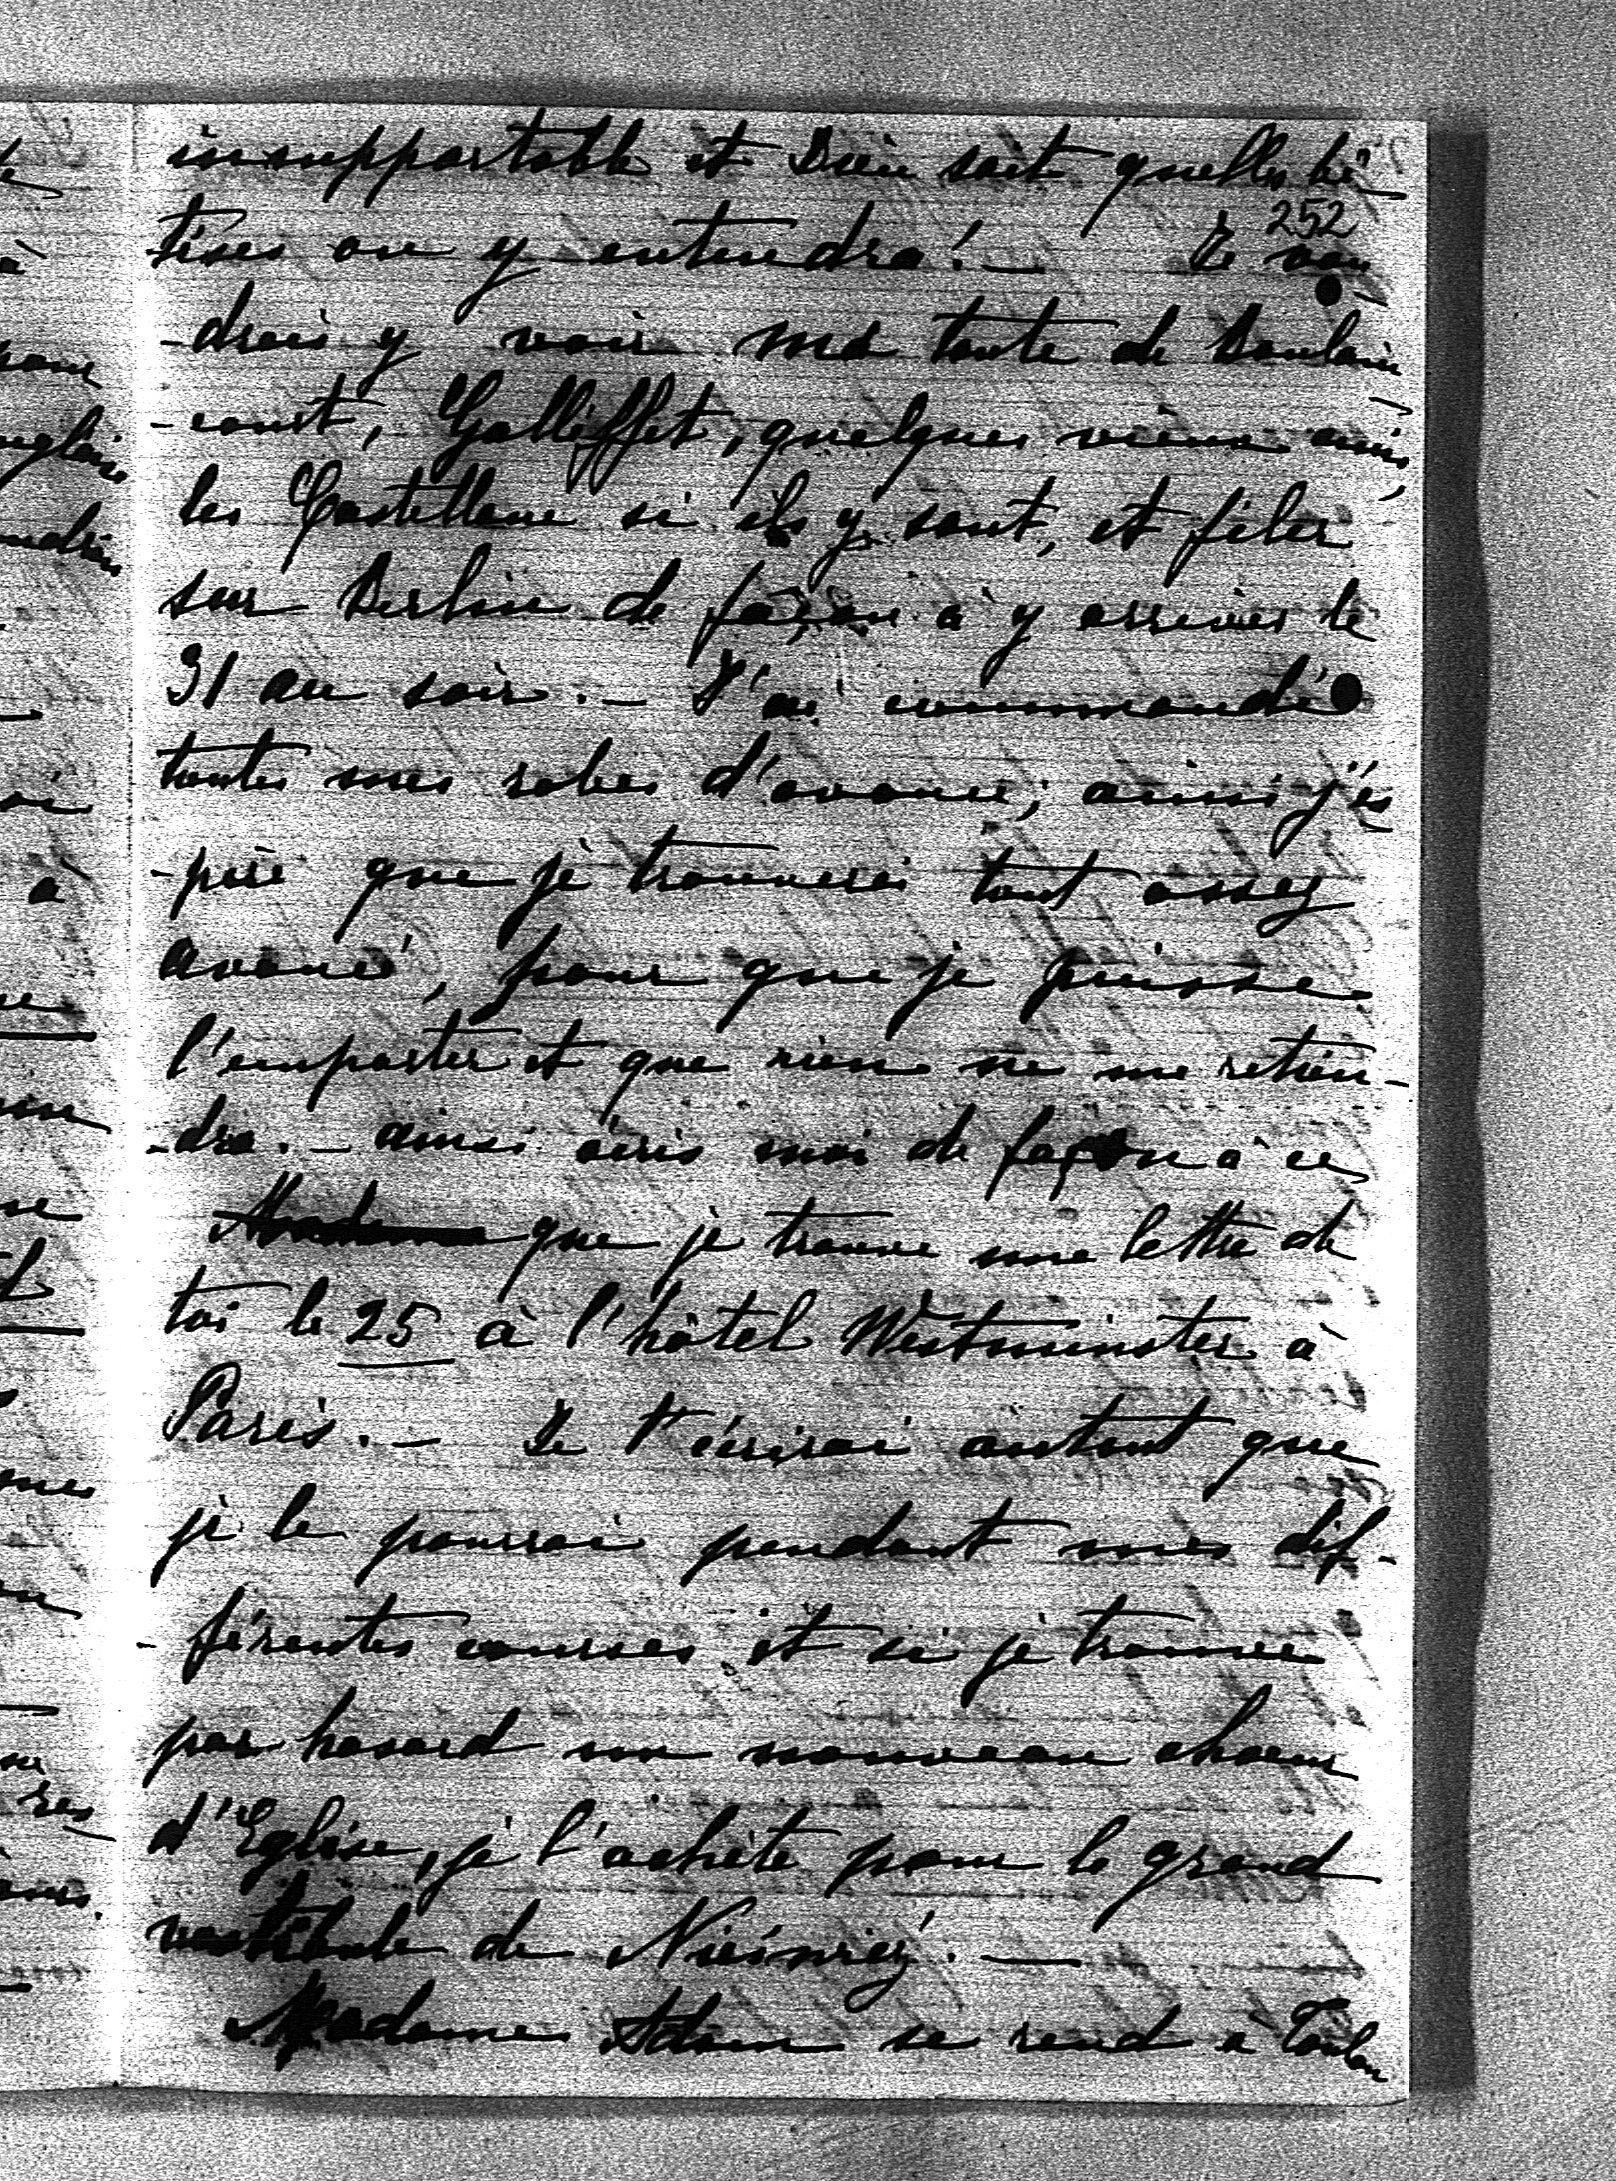 insupportable et Dieu sait quelles bê-
252
tises on y entendra! — Je vou
-drais y voir ma tante de Boulain
-court, Galliffet, quelques vieux amis,
les Castellane si ils y sont, et filer
sur Berlin de façon à y arriver le
31 au soir. — J'ai commandé
toutes mes robes d'avance; ainsi j'es
-père que je trouverai tout assez
avancé, pour que je puisse
l'emporter et que rien ne me retien-
-dra. — ainsi écris moi de façon à ce
que je trouve une lettre de
toi le 25 à l'hôtel Westminster à
Paris. — Je t'écrirai autant que
je le pourrai pendant mes dif-
-férentes courses et si je trouve
par hasard un nouveau choeur
d'Eglise, je l'achète pour le grand
vestibule de Nieswiez. —
Madame Adam se rend à Toulon